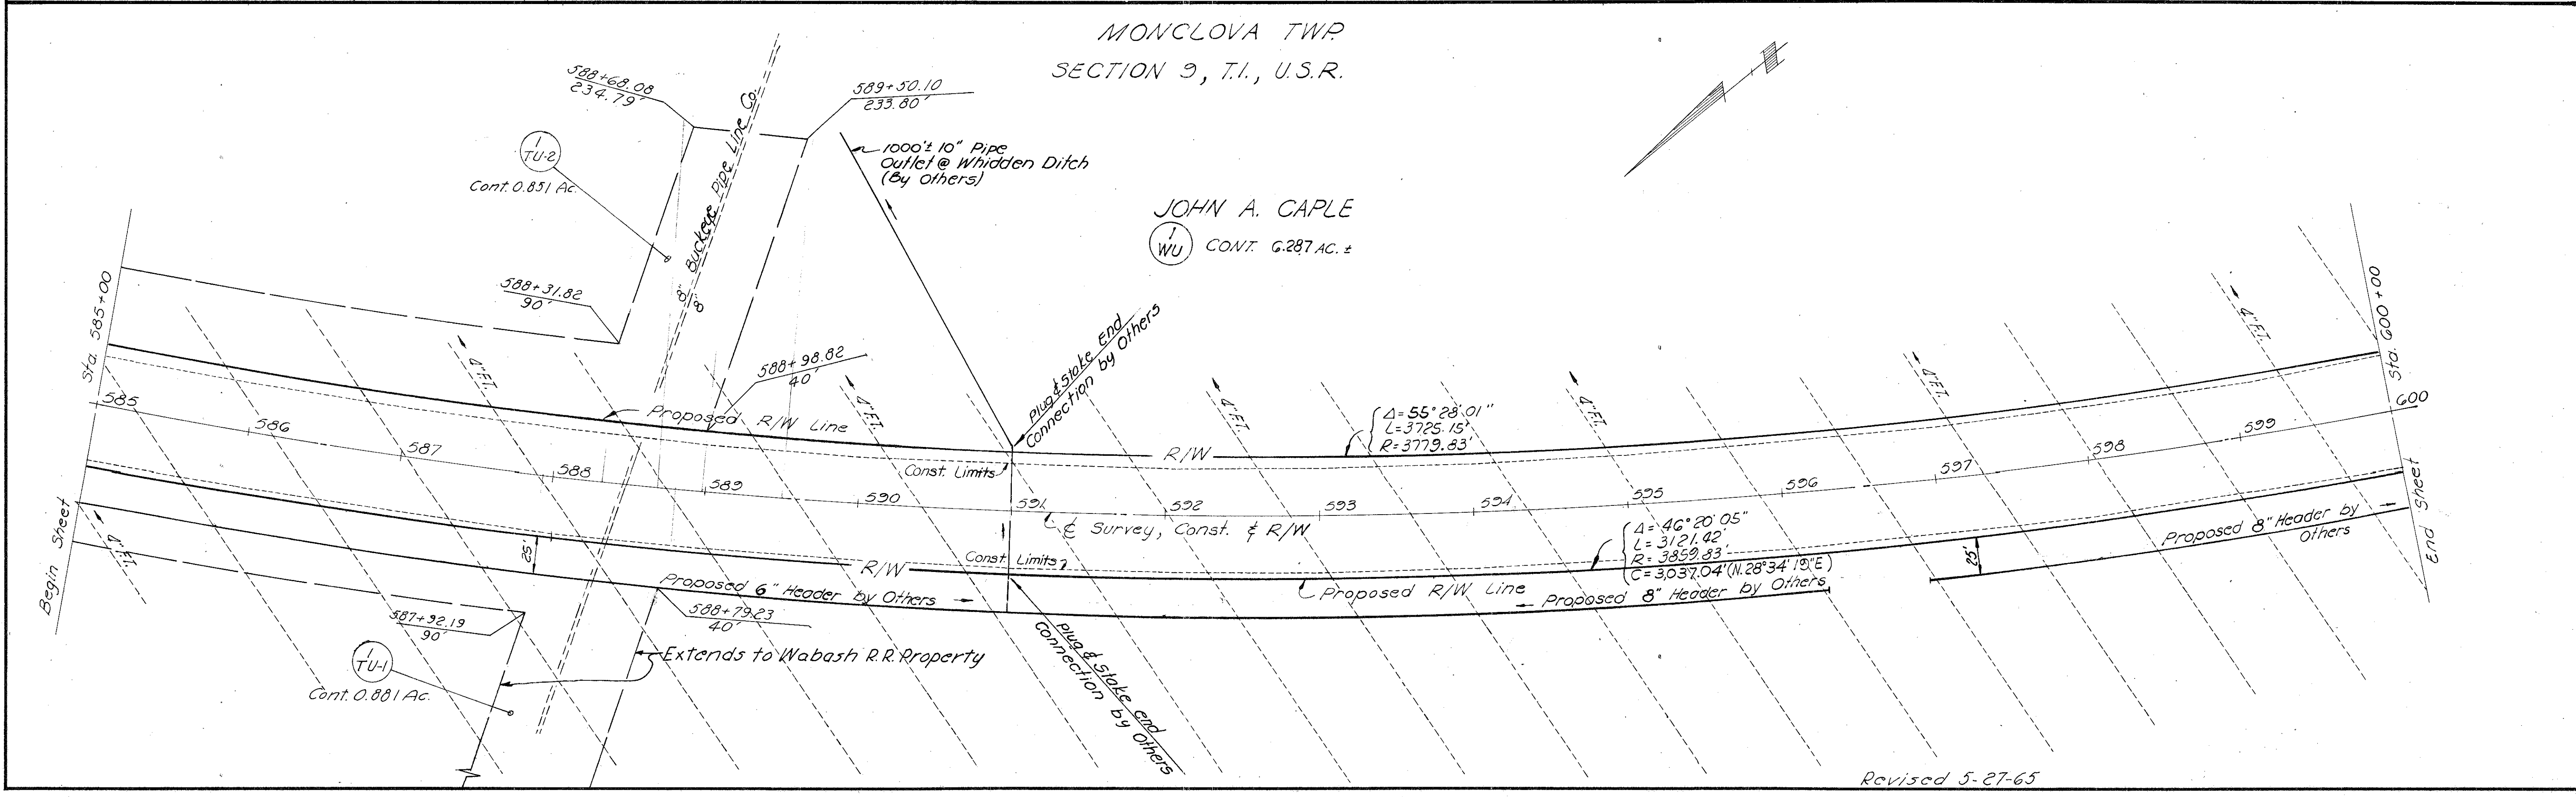 MONCLOVA TWP.
SECTION 9, T.1., U.S.R.
588+68.08
234.79'
589+50.10
233.80'
1
TU-2
Cont. 0.851 Ac.
Buckeye Pipe Line Co.
8"
8"
1000'± 10" Pipe
Outlet @ Whidden Ditch
(By Others)
JOHN A. CAPLE
1
WU
CONT. 6.287 AC. ±
588+31.82
90'
588+98.82
40'
Sta. 585+00
Begin Sheet
Sta. 600+00
End Sheet
Plug & Stake End
Connection by Others
4" F.T.
4" F.T.
4" F.T.
4" F.T.
4" F.T.
4" F.T.
4" F.T.
Proposed R/W Line
R/W
Δ= 55° 28' 01"
L= 3725.15'
R= 3779.83'
Const. Limits
585
586
587
588
589
590
591
592
593
594
595
596
597
598
599
600
℄ Survey, Const. & R/W
Const. Limits
R/W
Δ= 46° 20' 05"
L= 3121.42'
R= 3859.83'
C= 3,037.04' (N.28°34'19"E)
Proposed R/W Line
25'
25'
Proposed 6" Header by Others
Proposed 8" Header by Others
Proposed 8" Header by
Others
587+92.19
90'
588+79.23
40'
1
TU-1
Cont. 0.881 Ac.
Extends to Wabash R.R. Property
Plug & Stake end
Connection by Others
Revised 5-27-65